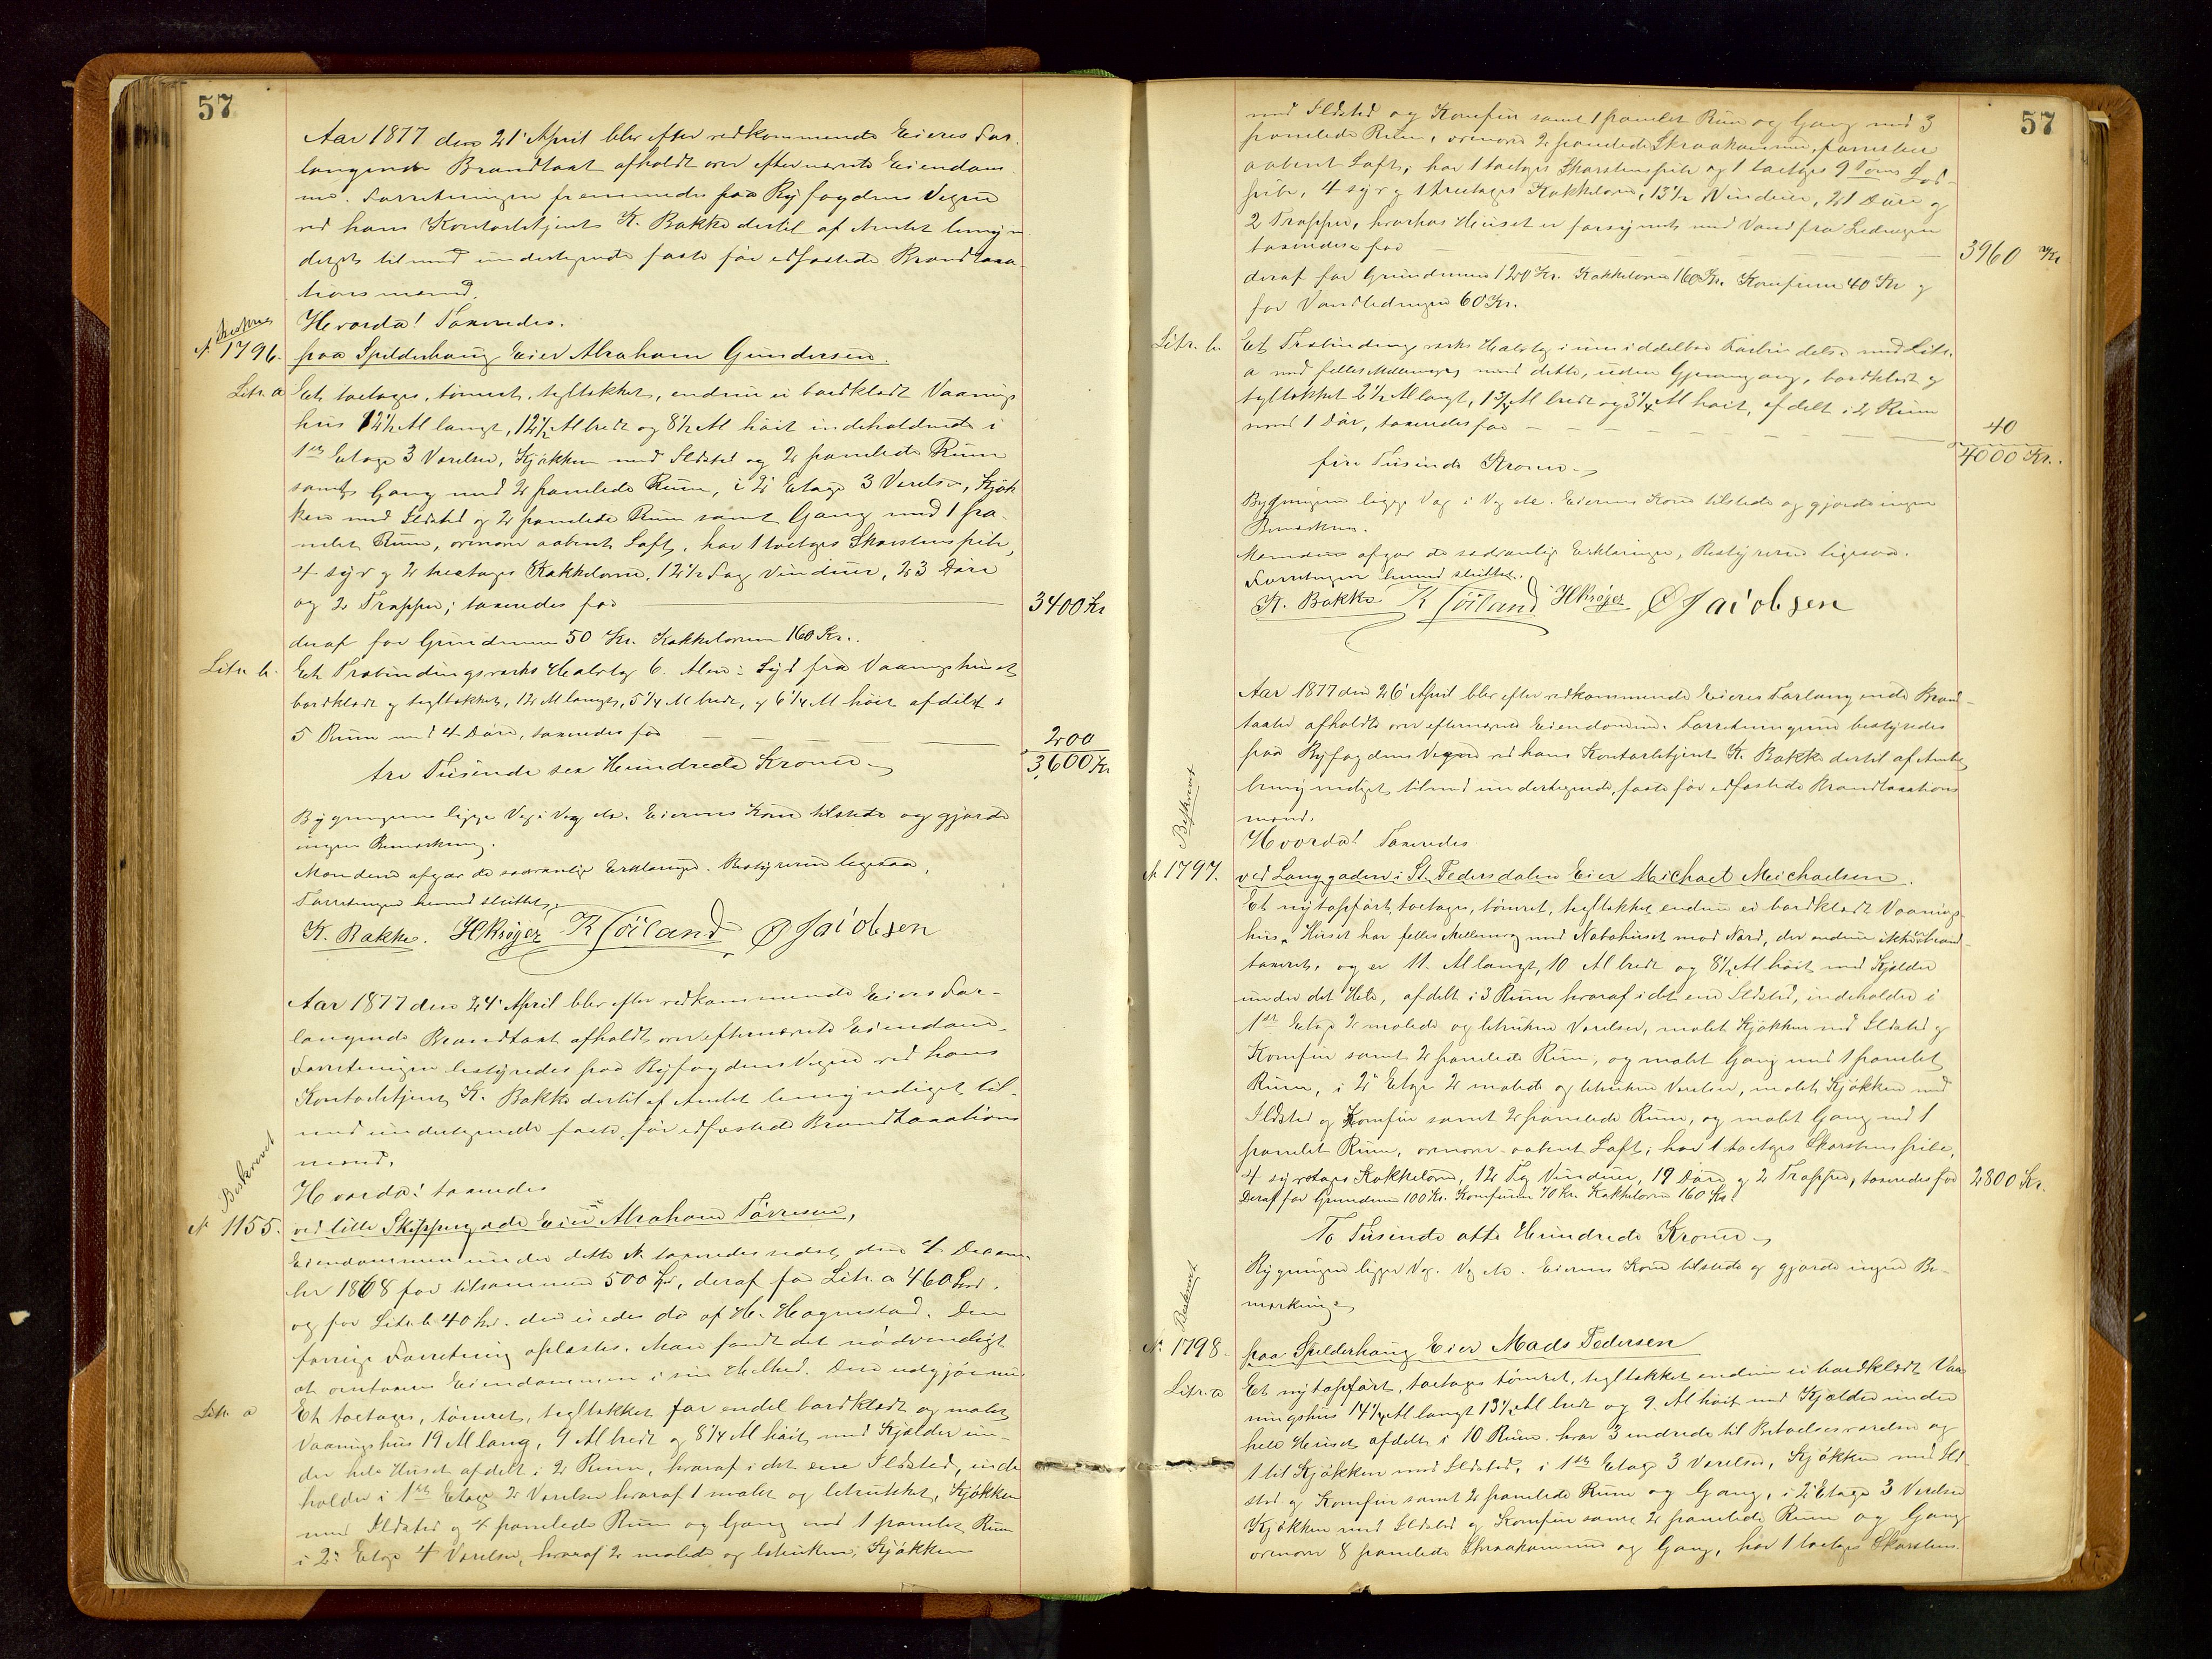 57
Aar 1877 den 21' April blev efter vedkommende Eieres For-
langende Brandtaxt afholdt over efternævnte Eiendom-
me. Forretningen fremmedes paa Byfogdens Vegne
ved hans Kontorbetjent K. Bakke dertil af Amtet bemyn-
diget tilmed undertegnede faste før edfæstede Brandtaxa-
tionsmænd.
Hvorda! Taxeredes.
Beskrevet
N 1796. paa Spilderhaug Eier Abraham Gundersen.
Litr. a Et toetages, tømret, tegltækket, endnu ei bordklædt Vaanings
hus 12 1/2 Al langt, 12 1/2 Al bredt og 8 1/2 Al høit indeholdende i
1ste Etage 3 Værelser, Kjøkken med Ildsted og 2 panelede Rum
samt Gang med 2 panelede Rum, i 2' Etage 3 Værelser, Kjøk
ken med Ildsted og 2 panelede Rum samt Gang med 1 pa-
nelet Rum, ovenover aabent Loft, har 1 toetages Skorstenspibe,
4 syv og 2 treetages Kakkelovne, 12 1/2 Fag Vinduer, 23 Døre
og 2 Trapper; taxeredes for 3400 Kr
deraf for Grundmuren 50 Kr. Kakkelovnene 160 Kr.
Litr. b. Et Træbindingsværks Halvtag 6. Alen i Syd fra Vaaningshuset
bordklædt og tegltækket, 12 Al langt, 5 1/4 Al bredt, og 6 1/4 Al høit afdelt i
5 Rum med 4 Døre, taxeredes for 200
3,600 Kr
tre Tusinde sex Hundrede Kroner
Bygningerne ligge Veg i Veg etc. Eierens Kone tilstede og gjorde
ingen Bemærkning.
Mændene afgav de sædvanlige Erklæringer. Bestyreren ligesaa,
Forretningen hermed sluttet.
K. Bakke. H Krøger K Höiland Ø Jacobsen
Aar 1877 den 24' April blev efter vedkommende Eiers For-
langende Brandtaxt afholdt over efternævnte Eiendom.
Forretningen bestyredes paa Byfogdens Vegne ved hans
Kontorbetjent K. Bakke dertil af Amtet bemyndiget til-
med undertegnede faste før edfæstede Brandtaxations
mænd.
Hvorda! taxeredes
Beskrevet
N 1155. ved lille Skippergade Eier Abraham Tørresen,
Eiendommen under dette N. taxeredes sidst den 4 Decem-
ber 1868 for tilsammen 500 Spd, deraf for Litr. a 460 Spd.
og for Litr. b 40 Spd. den eiedes da af H. Hagenstad. Den
forrige Forretning oplæstes. Man fandt det nødvendigt
at omtaxere Eiendommen i sin Helhed. Den udgjør nu
Litr. a Et toetages, tømret, tegltækket for endel bordklædt og malet
Vaaningshus 19 Al lang, 9 Al bredt og 8 1/4 Al høit, med Kjælder un-
der hele Huset afdelt i 2 Rum, hvoraf i det ene Ildsted, inde
holder i 1ste Etage 2 Værelser hvoraf 1 malet og betrukket, Kjøkken
med Ildsted og 4 panelede Rum og Gang med 1 panelet Rum
i 2' Etage 4 Værelser, hvoraf 2 malede og betrukne, Kjøkken
57
med Ildsted og Komfur samt 1 panelet Rum og Gang med 3
panelede Rum, ovenover 2 panelede Skraakamre, foruden
aabent Loft; har 1 toetages Skorstenspibe og 1 toetages 9 Toms
pibe, 4 syv og 1 treetages Kakkelovn, 13 1/2 Vinduer, 21 Døre og
2 Trapper, hvorhos Huset er forsynet med Vand fra Ledningen
taxeredes for 3960 Kr
deraf for Grundmuren 120 Kr. Kakkelovnene 160 Kr. Komfurene 40 Kr og
for Vandledningen 60 Kr.
Litr. b. Et Træbindingsværks Halvtag i umiddelbar Forbindelse med Litr.
a med fælles Mellemvæg med dette, uden Gjennemgang, bordklædt og
tegltækket 2 1/2 Al langt, 1 3/4 Al bredt og 3 1/4 Al høit, afdelt i 2 Rum
med 1 Dør, taxeredes for 40
4000 Kr.
fire Tusinde Kroner
Bygningerne ligge Veg i Veg etc. Eierens Kone tilstede og gjorde ingen
Bemærkning.
Mændene afgav de sædvanlige Erklæringer, Bestyreren ligesaa.
Forretningen hermed sluttet.
K. Bakke K Höiland H Krøger Ø Jacobsen
Aar 1877 den 26' April blev efter vedkommende Eieres Forlangende Brand-
taxter afholdt over efternævnte Eiendomme. Forretningerne bestyredes
paa Byfogdens Vegne ved hans Kontorbetjent K. Bakke dertil af Amtet
bemyndiget tilmed undertegnede, faste før edfæstede Brandtaxations
mænd.
Hvorda! Taxeredes
Beskrevet
N 1797. ved Langgaden i St. Pedersdalen Eier Michael Michaelsen.
Et nytopført, toetages, tømret, tegltækket endnu ei bordklædt Vaanings-
hus. Huset har fælles Mellemvæg med Nabohuset mod Nord, der endnu ikke er brand-
taxeret, og er 11. Al langt, 10 Al bredt og 8 1/2 Al høit med Kjælder
under det Hele, afdelt i 3 Rum hvoraf i det ene Ildsted, indeholder i
1ste Etage 2 malede og betrukne Værelser, malet Kjøkken med Ildsted og
Komfur samt 2 panelede Rum, og malet Gang med 1 panelet
Rum, i 2' Etage 2 malede og betrukne Værelser, malet Kjøkken med
Ildsted og Komfur samt 2 panelede Rum, og malet Gang med 1
panelet Rum, ovenover aabent Loft; har 1 toetages Skorstenspibe,
4 syvetages Kakkelovne, 12 Fag Vinduer, 19 Døre og 2 Trapper, taxeredes for 2800 Kr.
Deraf for Grundmuren 100 Kr. Komfurene 70 Kr. Kakkelovne 160 Kr.
To Tusinde otte Hundrede Kroner
Bygningen ligger Veg i Veg etc. Eierens Kone tilstede og gjorde ingen Be-
mærkning
Beskrevet
N. 1798. paa Spilderhaug Eier Mads Pedersen
Litr. a Et nytopført, toetages tømret, tegltækket endnu ei bordklædt Vaa
ningshus 14 1/4 Al langt 13 1/2 Al bredt og 9. Al høit med Kjælder under
hele Huset afdelt i 10 Rum. hvor 3 indrede til Beboelsesværelser og
1 til Kjøkken med Ildsted, i 1ste Etage 3 Værelser, Kjøkken med Ild-
sted og Komfur samt 2 panelede Rum og Gang, i 2' Etage 3 Værelser
Kjøkken med Ildsted og Komfur samt 2 panelede Rum og Gang
ovenover 8 panelede Skraakamre og Gang, har 1 toetages Skorstens